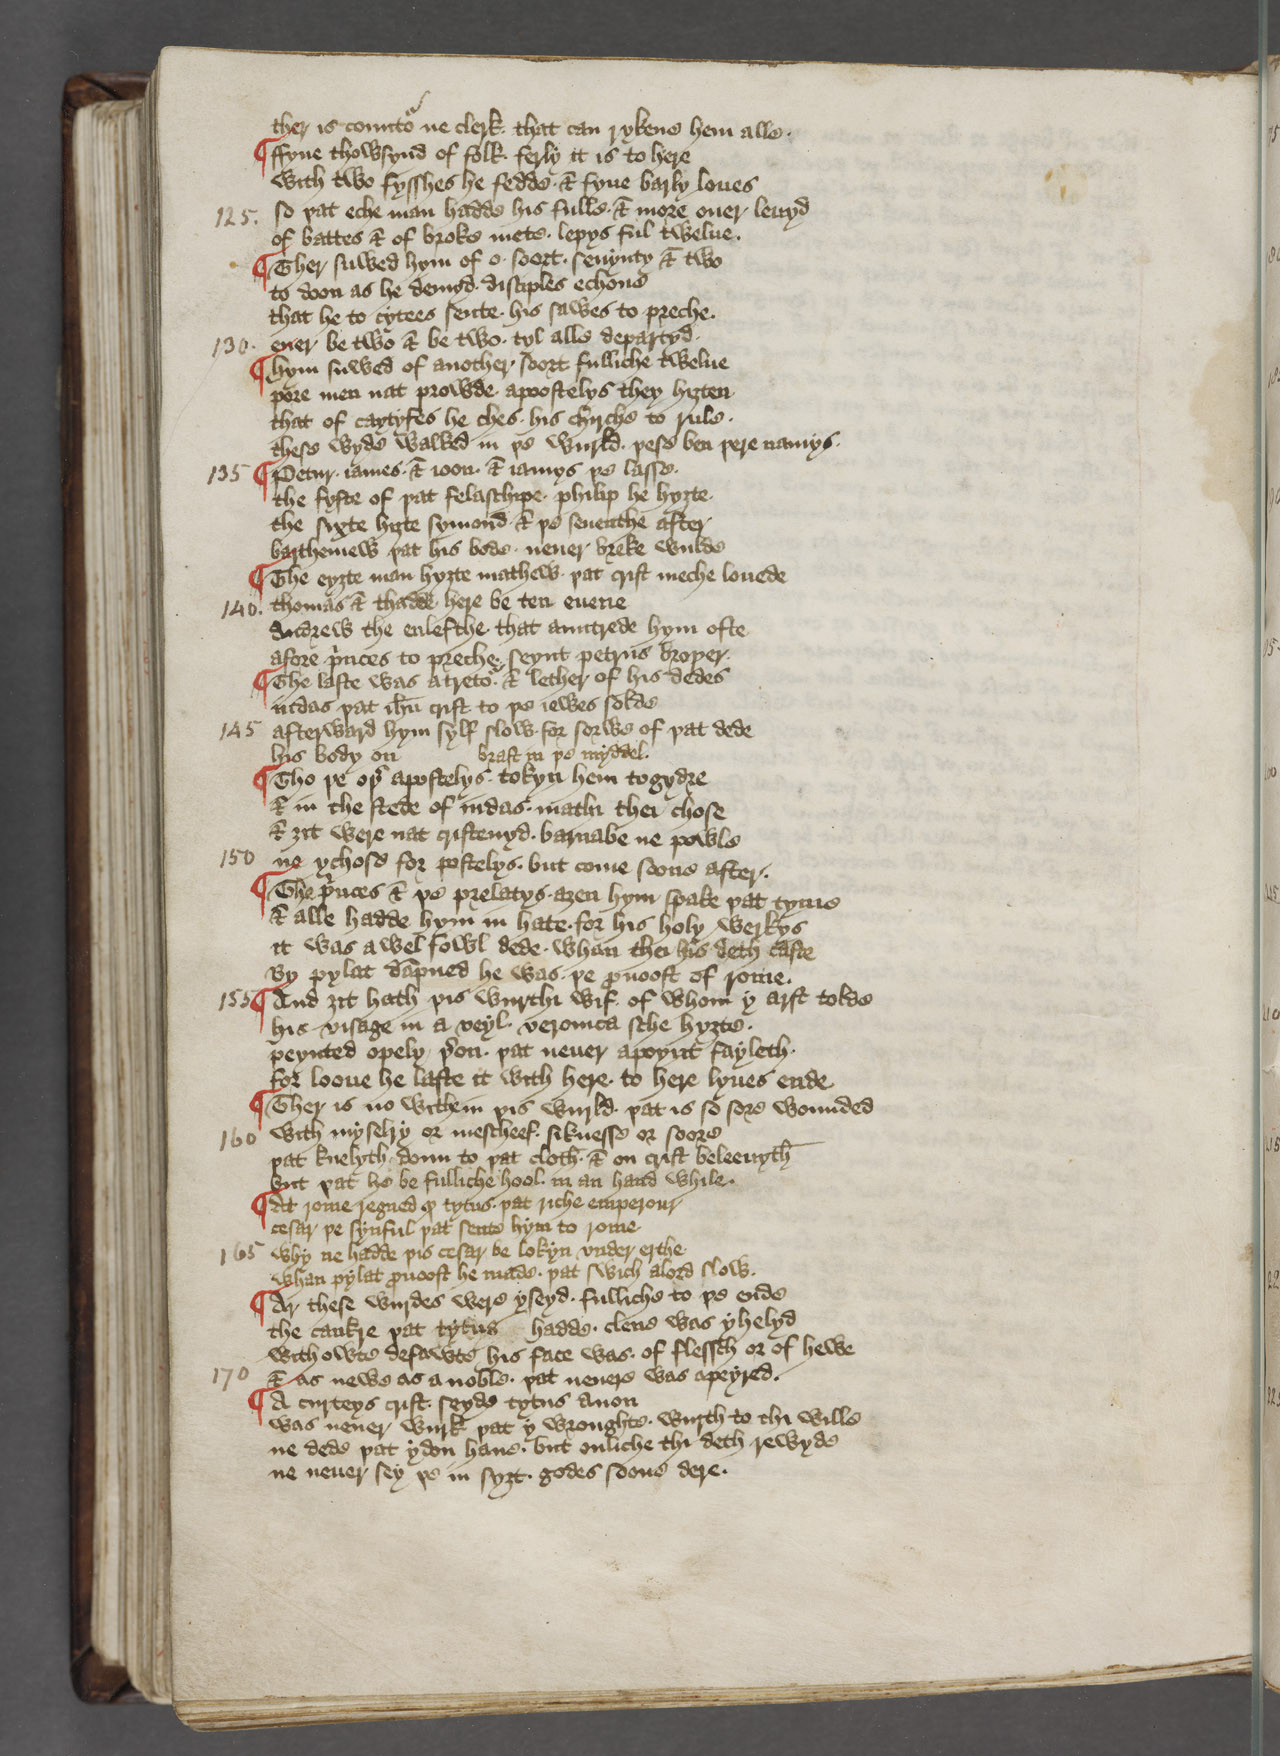 ther is countoͬ ne clerk· that can rykene hem alle·
¶ ffyue thowsynd of folk· ferly it is to here
with two fysshes he fedde· & fyue barly loues
125. so þat eche man hadde his fulle· & more ouer leuyd
of battes & of broke mete· lepys ful twelue·
¶ Ther suwed hym of o· soort· seuynty & two
to doon as he demyd· disciples echone
that he to cytees sente· his sawes to preche·
130. euer be two & be two· tyl alle departyd·
¶ hym suwed of another· soort fulliche twelue
pore men nat prowde· apostelys they hiȝten
that of caytyfes he ches· his chirche to rule·
these wyde walked in þe wurld· þese ben þere namys·
135 ¶ Petur· iames· & ioon· & iamys þe lasse·
the fyfte of þat felaschipe· philip he hyȝte·
the sixte hiȝte symond· & þe seuenthe after
barthemew þat his bode· neuer breke wulde
¶ The eyȝte man hyȝte mathew· þat crist meche louede
140. thomas & thadde· here be ten euene
Andrew the enlefthe· that auntrede hym ofte
afore p̓nces to preche· seynt petrus broþer·
¶ The laste was a tretoͬ· & lether of his dedes
iudas þat ih̄u crist to þe iewes solde
145 afterward hym sylf slow· for sorwe of þat dede
his body on brast in þe myddel·
¶ Tho þe oþ̓ apostelys· tokyn hem togydre
& in the stede of iudas· mathi thei chose
& ȝit were nat cristenyd· barnabe ne powle
150 ne ychose for postelys· but come soone after·
¶ The p̓nces & þe prelatys· aȝen hym spake þat tyme
& alle hadde hym in hate· for his holy werkys
it was a wel fowl dede· whan thei his deth caste
By pylat dāpned he was· þe ꝓuoost of rome·
155 ¶ And ȝit hath þis wurthi wif· of whom y arst tolde
his visage in a veyl· veronica sche hyȝte·
peynted opely þ̓on· þat neuer a poynt fayleth·
for looue he lafte it with here· to here lyues ende
¶ Ther is no with em þis wurld· þat is so sore wounded
160 with myselry or mescheef· siknesse or soore
þat knelyth doun to þat cloth· & on crist beleeuyth
but þat he be fulliche hool· in an hand while·
¶ At rome regned tytus· þat riche emperour
cesar þe synful þat sente hym to rome
165 why ne hadde þis cesar be lokyn vnder erthe
whan pylat ꝓuoost he made· þat swich a lord slow·
¶ Ar these wurdes were yseyd· fulliche to þe ende
the cankre þat tytus hadde· clene was yhelyd
with owte defawte his face was· of flessch or of hewe
170 & as newe as a noble· þat neuere was apeyred·
¶ A curteys crist· seyde tytus anon
was neuer wurk þat y wroughte· wurth to thi wille
ne dede þat y don haue· but onliche thi deth rewyde
ne neuer sey þe in syȝt· godes soone dere·